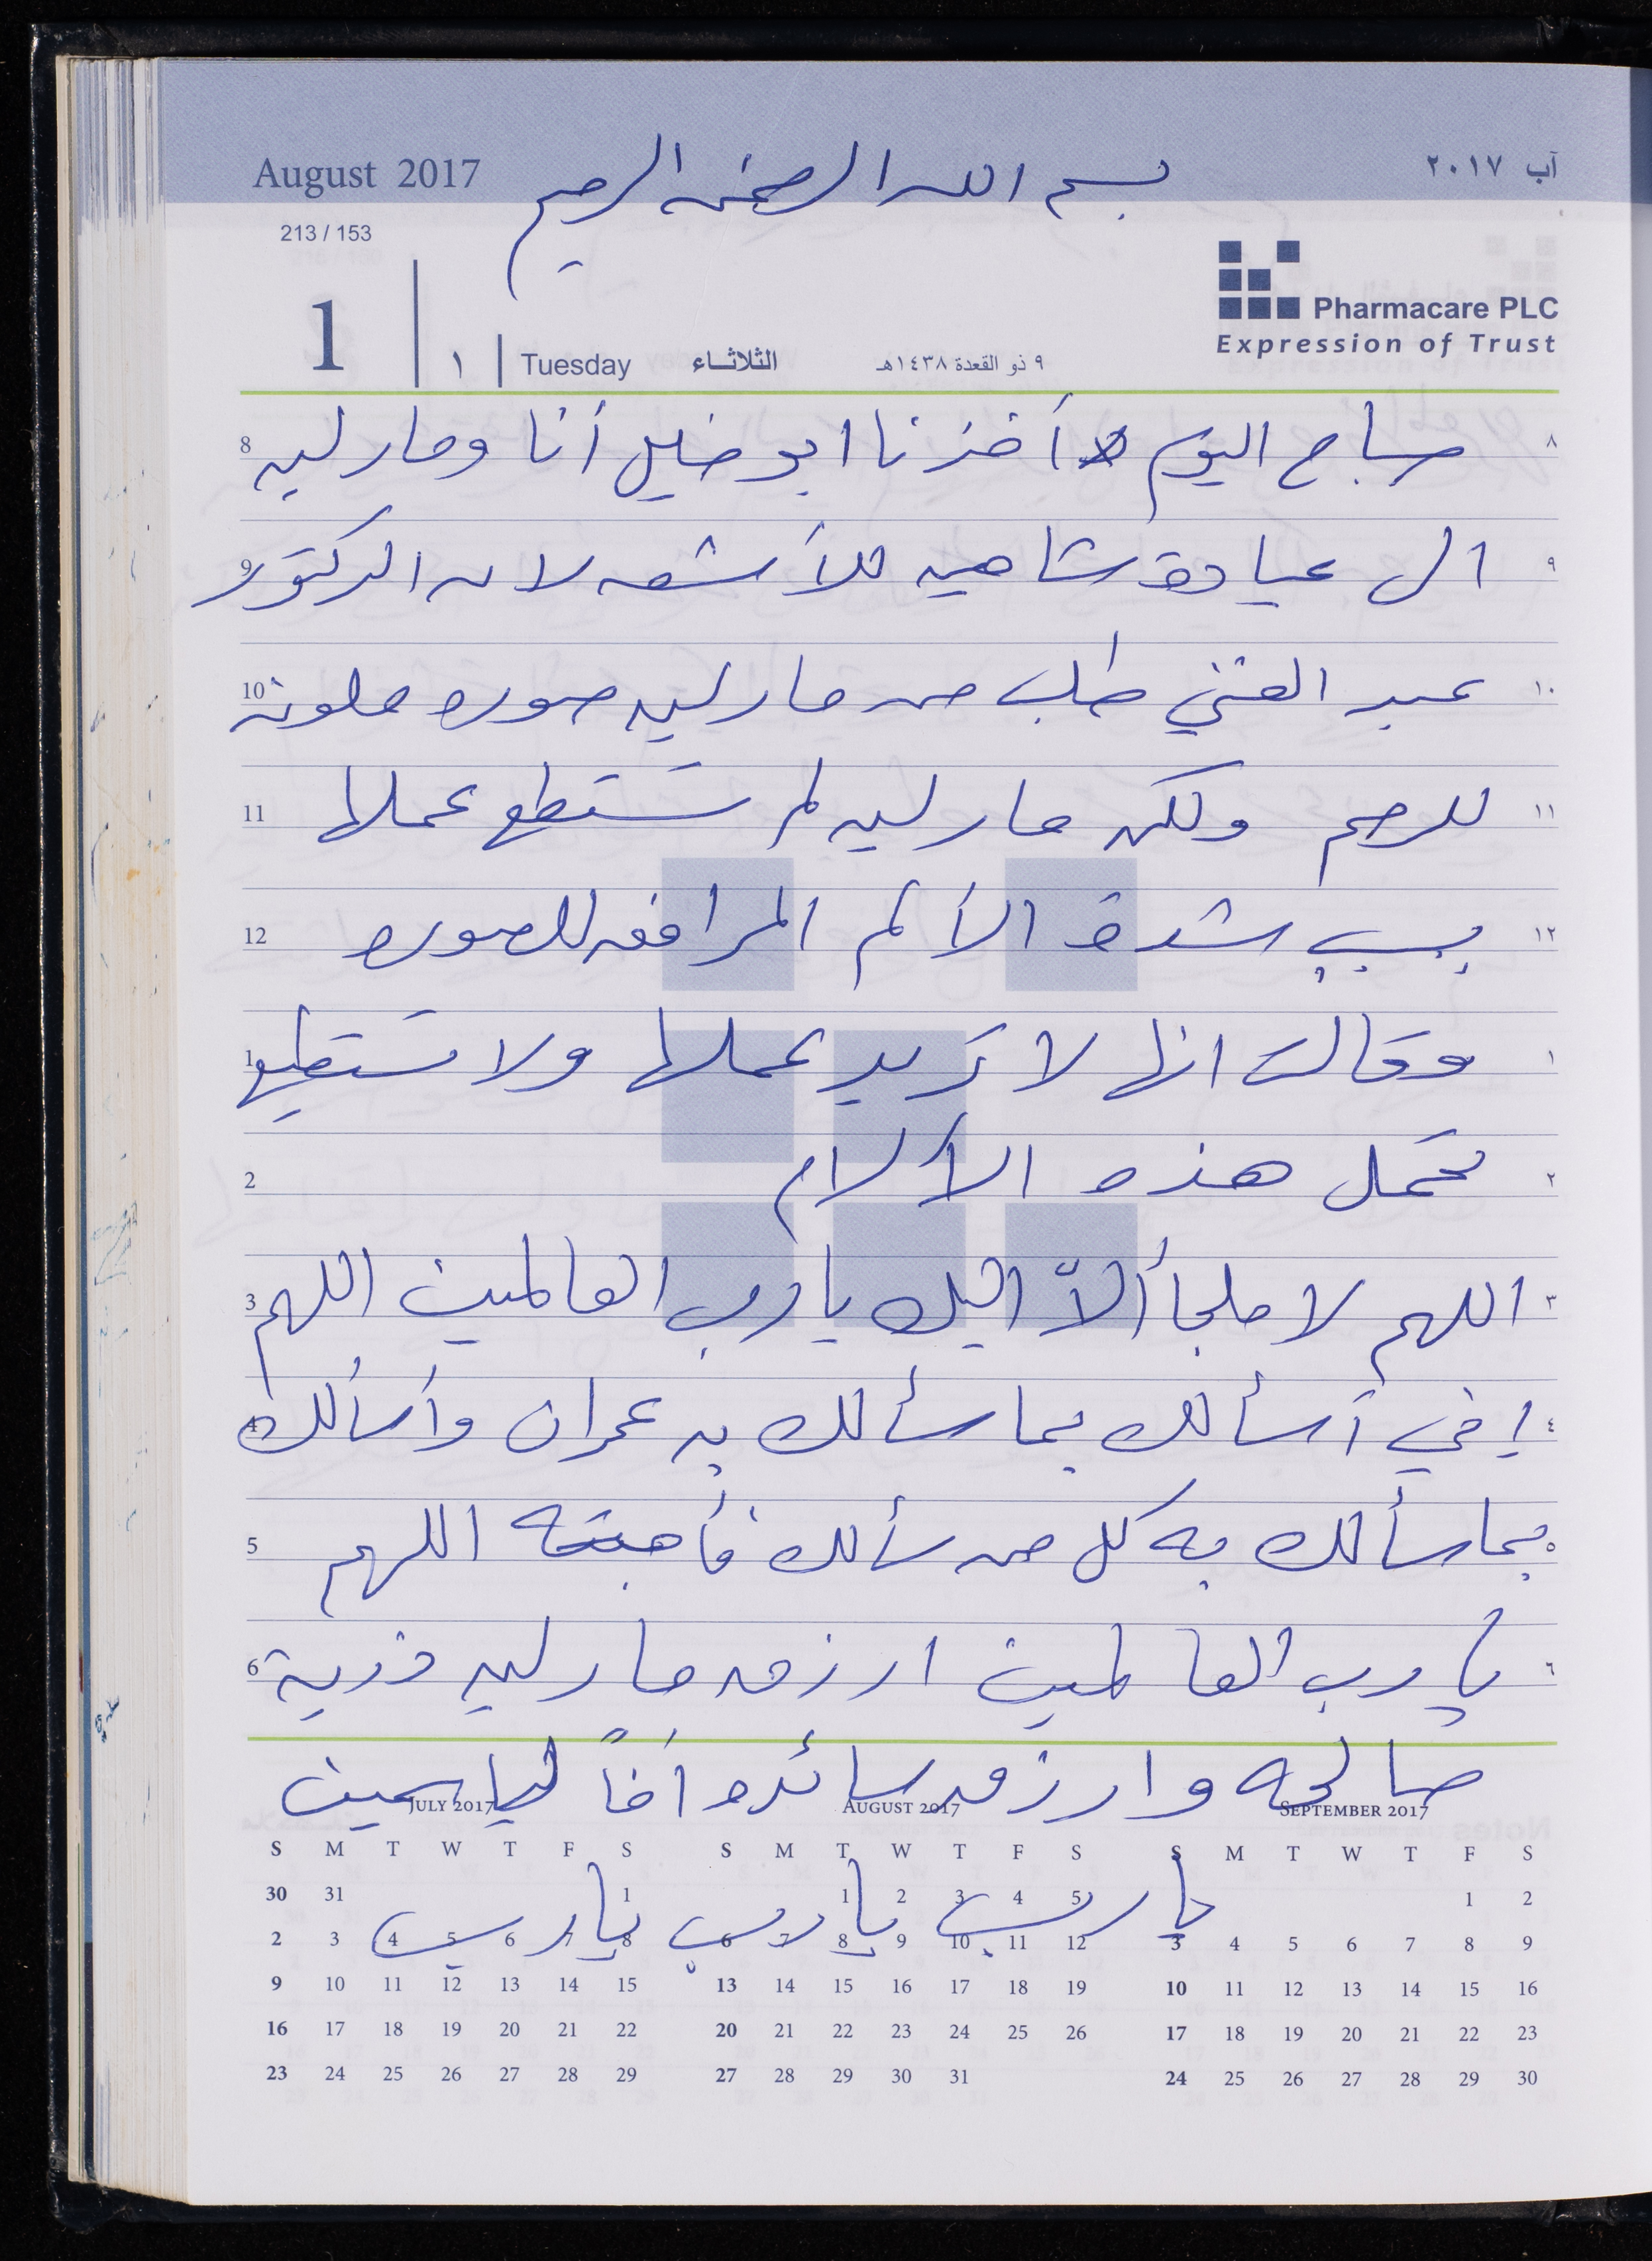 August 2017
بسم الله الرحمن الرحيم
آب ٢٠١٧
213 / 153
Pharmacare PLC
Expression of Trust
1 ١ Tuesday الثلاثاء ٩ ذو القعدة ١٤٣٨هـ
8 صباح اليوم أخذنا ابو خليل أنا ومارلين ٨
9 الى عيادة شاهين للأشعه لان الدكتور ٩
10 عبد الغني طلب من مارلين صوره ملونه ١٠
11 للرحم ولكن مارلين لم تستطع عملها ١١
12 بسبب شدة الألم المرافقه للصوره ١٢
1 وقالت انها لا تريد عملها ولا تستطيع ١
2 تحمل هذه الألام ٢
3 اللهم لا ملجأ الاّ اليك يا رب العالمين اللهم ٣
4 إني أسألك بما سألك به عمران وأسألك ٤
5 بما سألك به كل من سألك فأجبته اللهم ٥
6 يا رب العالمين ارزق مارلين ذرية ٦
صالحه وارزق سائده أخاً لياسمين
يا رب يا رب يا رب
JULY 2017
S M T W T F S
30 31 1
2 3 4 5 6 7 8
9 10 11 12 13 14 15
16 17 18 19 20 21 22
23 24 25 26 27 28 29
AUGUST 2017
S M T W T F S
1 2 3 4 5
6 7 8 9 10 11 12
13 14 15 16 17 18 19
20 21 22 23 24 25 26
27 28 29 30 31
SEPTEMBER 2017
S M T W T F S
1 2
3 4 5 6 7 8 9
10 11 12 13 14 15 16
17 18 19 20 21 22 23
24 25 26 27 28 29 30